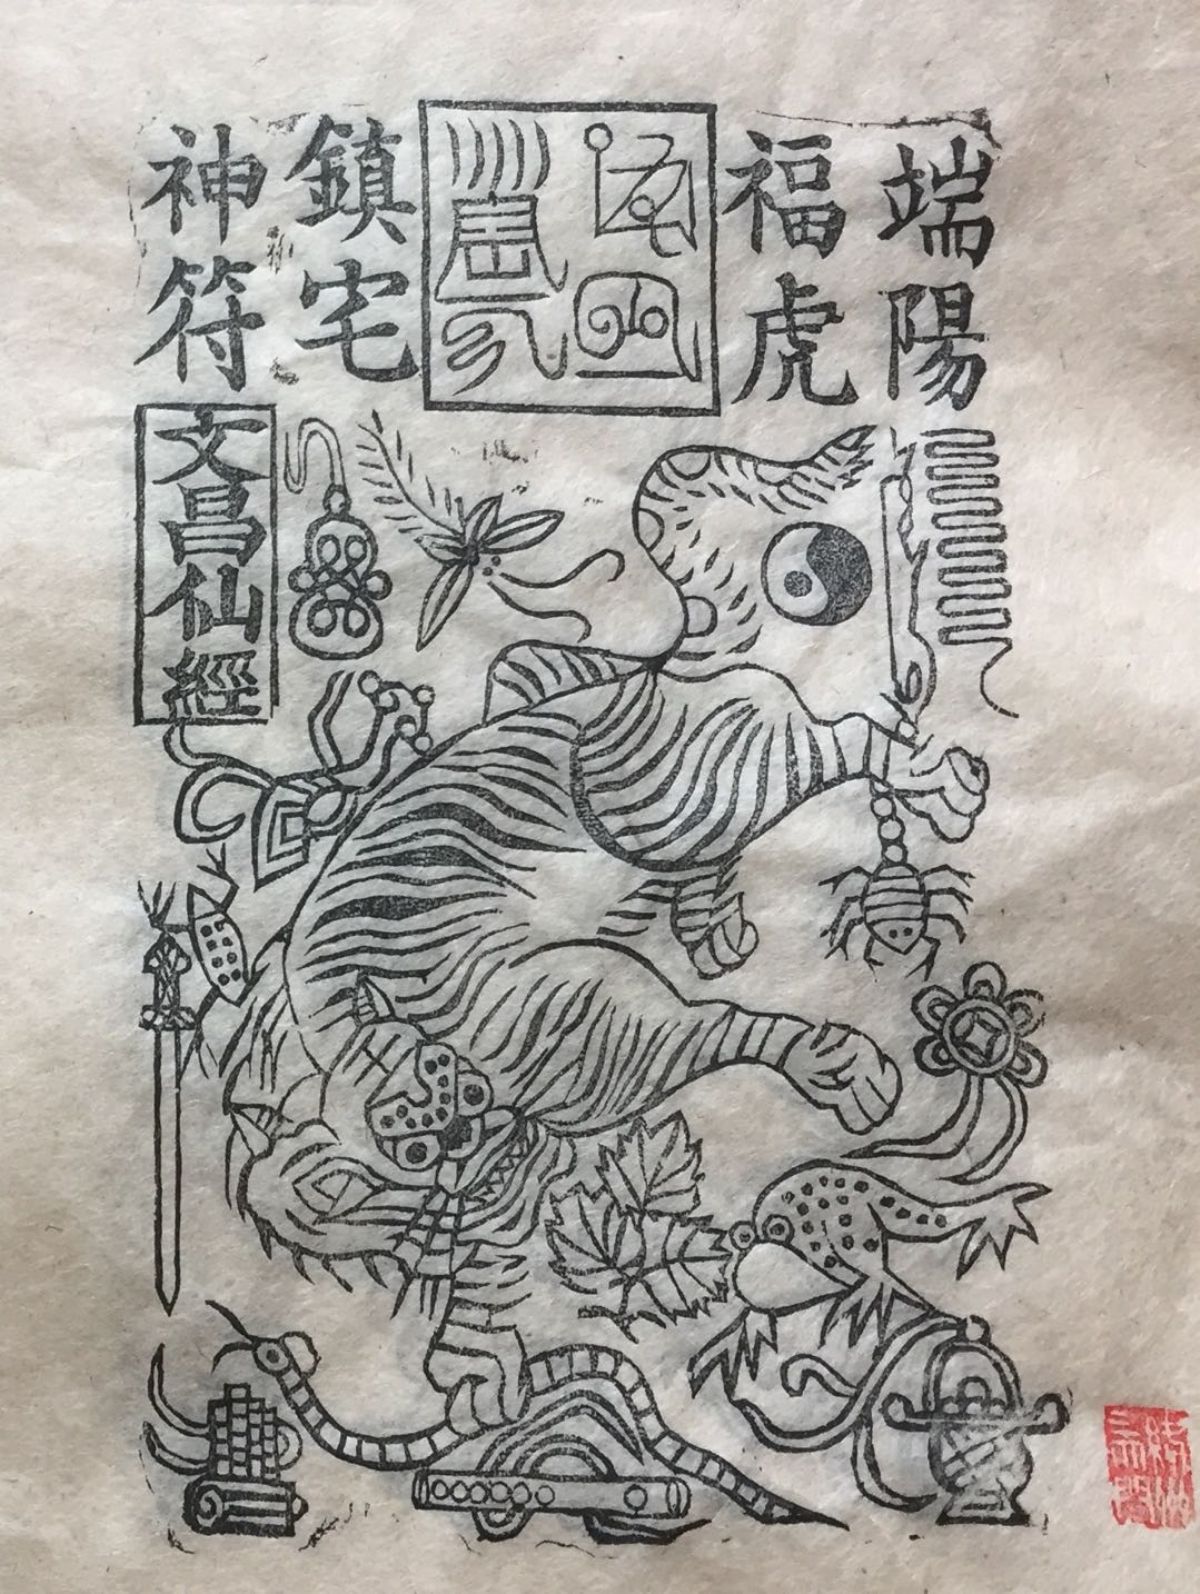 端陽
福虎
鎮宅
神符
文昌仙經